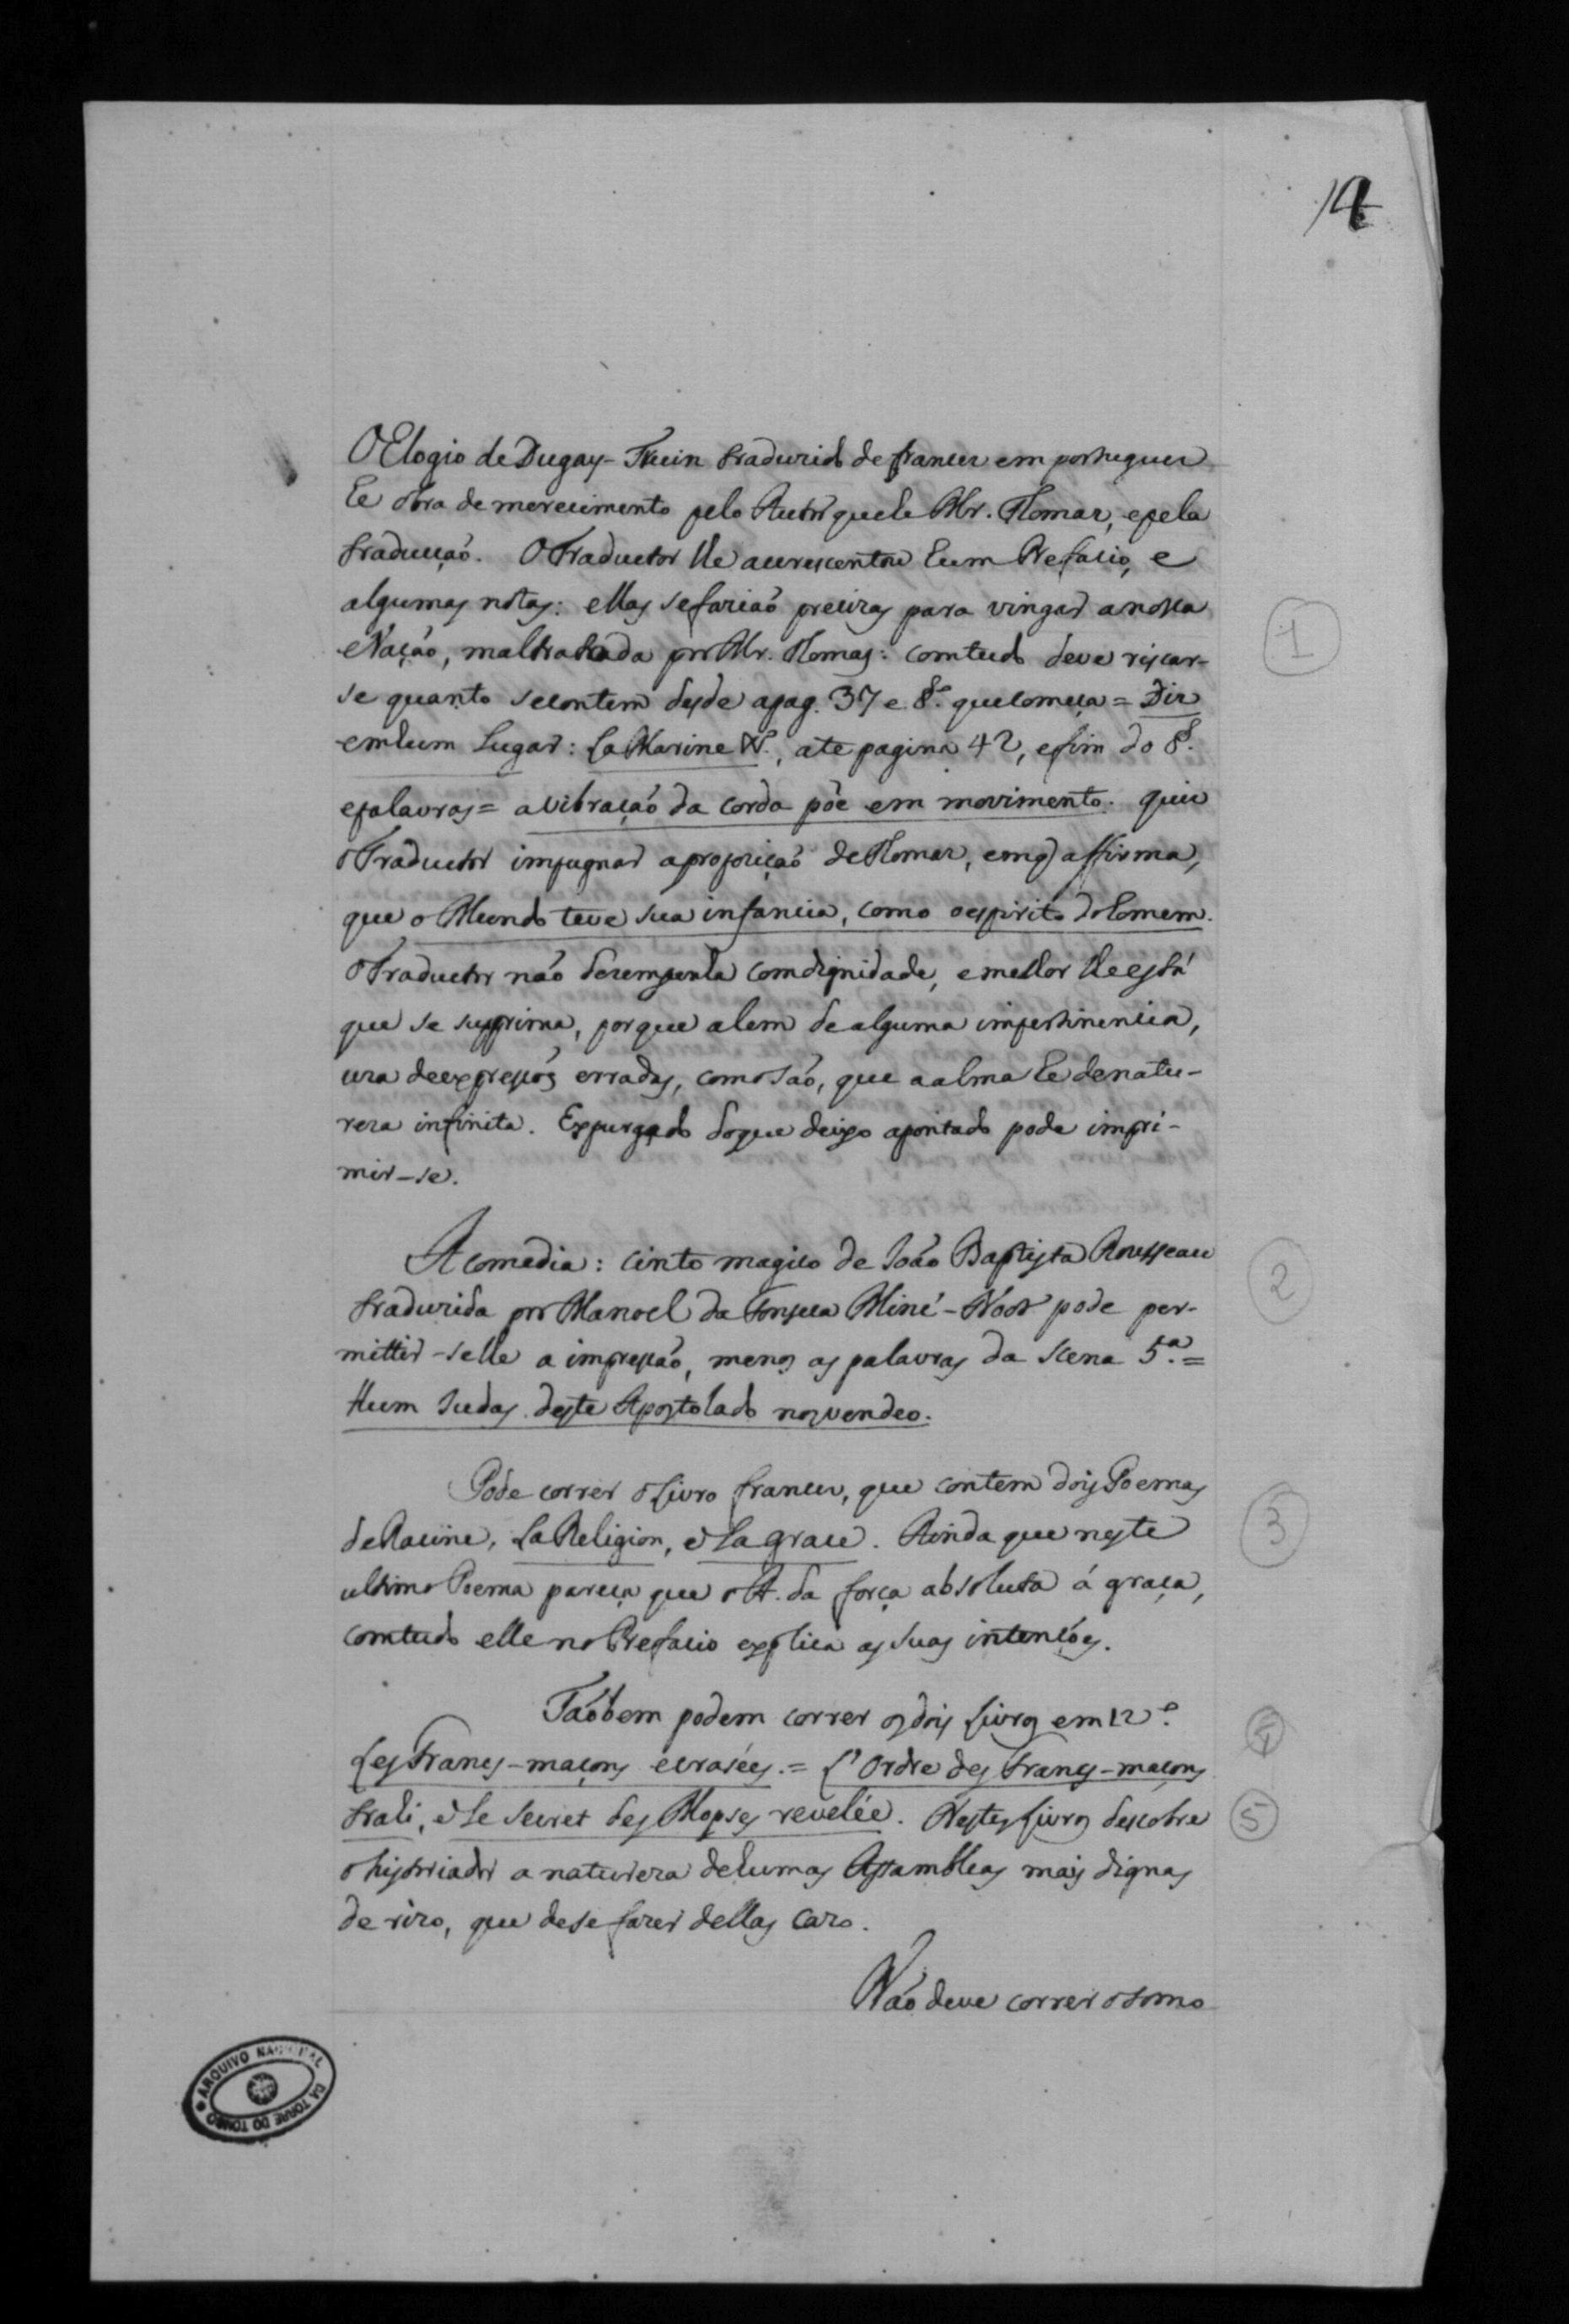 14
O Elogio de Dugay-Truin traduzido de francez em portuguez
he obra de merecimento pelo Autor que he Mr. Thomas, e pela
traducçaõ. O Traductor lhe accrescentou hum Prefacio, e
algumas notas: ellas se faziaõ precizas para vingar a nossa
Naçaõ, maltratada por Mr. Thomas: comtudo deve riscar-
se quanto se contem desde a pag. 37 e §.º que começa = Diz
em hum lugar: La Marine &., ate pagina 42, e fim do §.
e palavras = a vibraçaõ da corda põe em movimento. quiz
o Traductor impugnar a propoziçaõ de Thomaz, em q affirma,
que o Mundo teve sua infancia, como o espirito do homem.
O Traductor não dezempenha com dignidade, e melhor lhe está
que se supprima, porque alem de alguma impertinencia,
uza de expressoẽs erradas, como são, que a alma he de natu-
reza infinita. Expurgado do que deixo apontado pode impri-
mir-se.
1
A comedia: cinto magico de Joaõ Baptista Rousseau
traduzida por Manoel da Fonseca Miné-Noor pode per-
mittir-selhe a impressaõ, menos as palavras da Scena 5.ª =
Hum Judas deste Apostolado nos vendeo.
2
Pode correr o livro francez, que contem dois Poemas
de Racine, La Religion, e La grace. Ainda que neste
ultimo Poema pareça que o A. da força absoluta á graça,
comtudo elle no Prefacio explica as suas intençoẽs.
3
Taõbem podem correr os dois livros em 12.º
Les Francs-maçons ecrasées. = L'Ordre des Francs-maçons
trahi, e Le Secret des Mopses revelée. Nestes livros descobre
o historiador a natureza de humas Assambleas mais dignas
de rizo, que de se fazer dellas cazo.
4
5
Não deve correr o tomo
ARQUIVO NACIONAL DA TORRE DO TOMBO